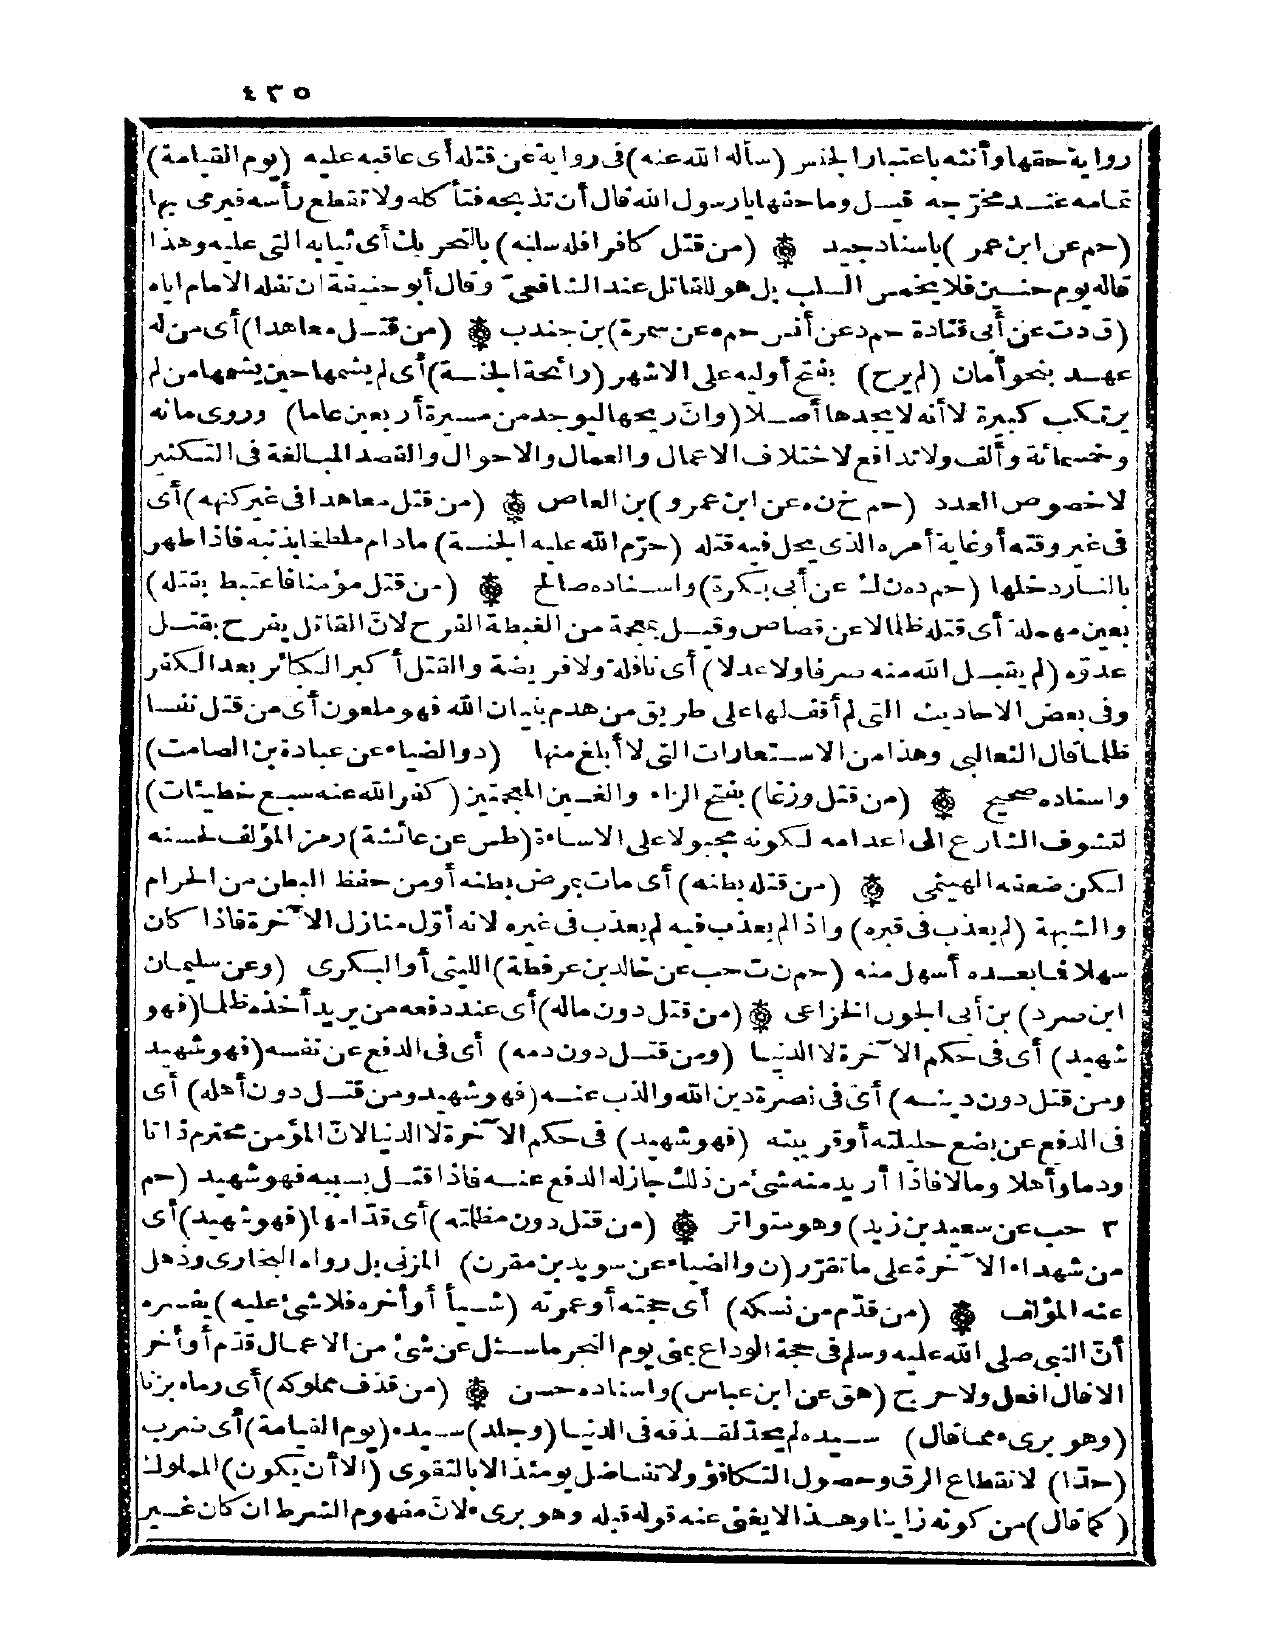 ٤٣٥
رواية حقها وأنثه باعتبار الجنس (سأله الله عنه) فى رواية عن قتله أى عاقبه عليه (يوم القيامة)
تمامه عند مخرّجه قيل وما حقها يا رسول الله قال أن تذبحه فتأكله ولا تقطع رأسه فيرمى بها
(حم عن ابن عمر) باسناد جيد (من قتل كافرا فله سلبه) بالتحريك أى ثيابه التى عليه وهذا
قاله يوم حنين فلا يخمس السلب بل هو للقاتل عند الشافعىّ وقال أبو حنيفة ان نفله الامام اياه
(ق د ت عن أبى قتادة حم د عن أنس حم ه عن سمرة) بن جندب (من قتل معاهدا) أى من له
عهد بنحو أمان (لم يرح) بفتح أوليه على الاشهر (رائحة الجنة) أى لم يشمها حين يشمها من لم
يرتكب كبيرة لا أنه لا يجدها أصلا (وانّ ريحها ليوجد من مسيرة أربعين عاما) وروى مائة
وخمسمائة وألف ولا تدافع لاختلاف الاعمال والعمال والاحوال والقصد المبالغة فى التكثير
لا خصوص العدد (حم خ ن ه عن ابن عمرو) بن العاص (من قتل معاهدا فى غير كنهه) أى
فى غير وقته أو غاية أمره الذى يحل فيه قتله (حرّم الله عليه الجنة) مادام ملطخا بذنبه فاذا طهر
بالنار دخلها (حم د ن ك عن أبى بكرة) واسناده صالح (من قتل مؤمنا فاعتبط بقتله)
بعين مهملة أى قتله ظلما لا عن قصاص وقيل بمعجمة من الغبطة الفرح لانّ القاتل يفرح بقتل
عدوّه (لم يقبل الله منه صرفا ولا عدلا) أى نافلة ولا فريضة والقتل أكبر الكبائر بعد الكفر
وفى بعض الاحاديث التى لم أقف لها على طريق من هدم بنيان الله فهو ملعون أى من قتل نفسا
ظلما قال الثعالبى وهذا من الاستعارات التى لا أبلغ منها (د والضياء عن عبادة بن الصامت)
واسناده صحيح (من قتل وزغا) بفتح الزاء والغين المعجمتين (كفر الله عنه سبع خطيئات)
لتشوف الشارع الى اعدامه لكونه مجبولا على الاساءة (طس عن عائشة) رمز المؤلف لحسنه
لكن ضعفه الهيثمى (من قتله بطنه) أى مات بمرض بطنه أو من حفظ البطن من الحرام
والشبهة (لم يعذب فى قبره) واذا لم يعذب فيه لم يعذب فى غيره لانه أوّل منازل الآخرة فاذا كان
سهلا فما بعده أسهل منه (حم ن ت حب عن خالد بن عرفطة) الليثى أو البكرى (وعن سليمان
ابن صرد) بن أبى الجون الخزاعى (من قتل دون ماله) أى عند دفعه من يريد أخذه ظلما (فهو
شهيد) أى فى حكم الآخرة لا الدنيا (ومن قتل دون دمه) أى فى الدفع عن نفسه (فهو شهيد
ومن قتل دون دينه) أى فى نصرة دين الله والذب عنه (فهو شهيد ومن قتل دون أهله) أى
فى الدفع عن بضع حليلته أو قريبته (فهو شهيد) فى حكم الآخرة لا الدنيا لانّ المؤمن محترم ذاتا
ودما وأهلا ومالا فاذا أريد منه شئ من ذلك جاز له الدفع عنه فاذا قتل بسببه فهو شهيد (حم
٣ حب عن سعيد بن زيد) وهو متواتر (من قتل دون مظلمته) أى قدّامها (فهو شهيد) أى
من شهداء الآخرة على ما تقرّر (ن والضياء عن سويد بن مقرن) المزنى بل رواه البخارى وذهل
عنه المؤلف (من قدّم من نسكه) أى حجته أو عمرته (شيأ أو أخره فلا شئ عليه) يفسره
أنّ النبى صلى الله عليه وسلم فى حجة الوداع بمنى يوم النحر ما سئل عن شئ من الاعمال قدّم أو أخر
الا قال افعل ولا حرج (هق عن ابن عباس) واسناده حسن (من قذف مملوكه) أى رماه بزنا
(وهو برىء مما قال) سيده لم يحدّ لقذفه فى الدنيا (وجلد) سيده (يوم القيامة) أى ضرب
(حدّا) لانقطاع الرق وحصول التكافؤ ولا تفاضل يومئذ الا بالتقوى (الا أن يكون) المملوك
(كما قال) من كونه زانيا وهذا لا يغنى عنه قوله قبله وهو برىء لانّ مفهوم الشرط ان كان غير